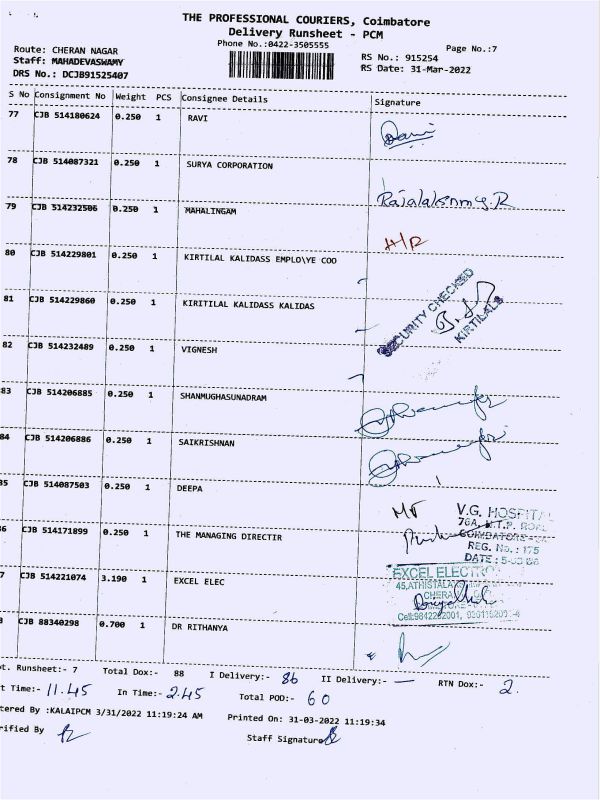 THE PROFESSIONAL COURIERS, Coimbatore
Delivery Runsheet - PCM
Phone No.:0422-3505555
Page No.:7
Route: CHERAN NAGAR
Staff: MAHADEVASWAMY
DRS No.: DCJB91525407
RS No.: 915254
RS Date: 31-Mar-2022
S No Consignment No Weight PCS Consignee Details Signature
77 CJB 514180624 0.250 1 RAVI
Ravi
78 CJB 514087321 0.250 1 SURYA CORPORATION
Rajalakshmi.R
79 CJB 514232506 0.250 1 MAHALINGAM
80 CJB 514229801 0.250 1 KIRTILAL KALIDASS EMPLO\YE COO
81 CJB 514229860 0.250 1 KIRITILAL KALIDASS KALIDAS
SECURITY CHECKED
KIRTILALS
82 CJB 514232489 0.250 1 VIGNESH
83 CJB 514206885 0.250 1 SHANMUGHASUNADRAM
84 CJB 514206886 0.250 1 SAIKRISHNAN
85 CJB 514087503 0.250 1 DEEPA
V.G. HOSPITAL
76A, M.T.P. ROAD
COIMBATORE
REG. No.: 175
DATE :
6 CJB 514171899 0.250 1 THE MANAGING DIRECTIR
7 CJB 514221074 3.190 1 EXCEL ELEC
EXCEL ELECTR
45,ATHISTALA
CHERA
Cell:9842292001,
8 CJB 88340298 0.700 1 DR RITHANYA
ot. Runsheet:- 7 Total Dox:- 88 I Delivery:- 86 II Delivery:- — RTN Dox:- 2.
t Time:- 11.45 In Time:- 2.45 Total POD:- 60
tered By :KALAIPCM 3/31/2022 11:19:24 AM Printed On: 31-03-2022 11:19:34
rified By Staff Signature